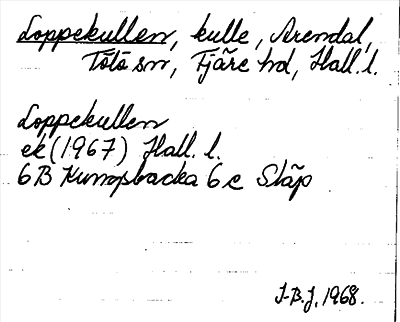 Loppekullen, kulle, Arendal,
Tölö sn, Fjäre hd, Hall. l.
Loppekullen
ek (1967) Hall. l.
6B Kungsbacka 6 c Släp
J.B.J. 1968.